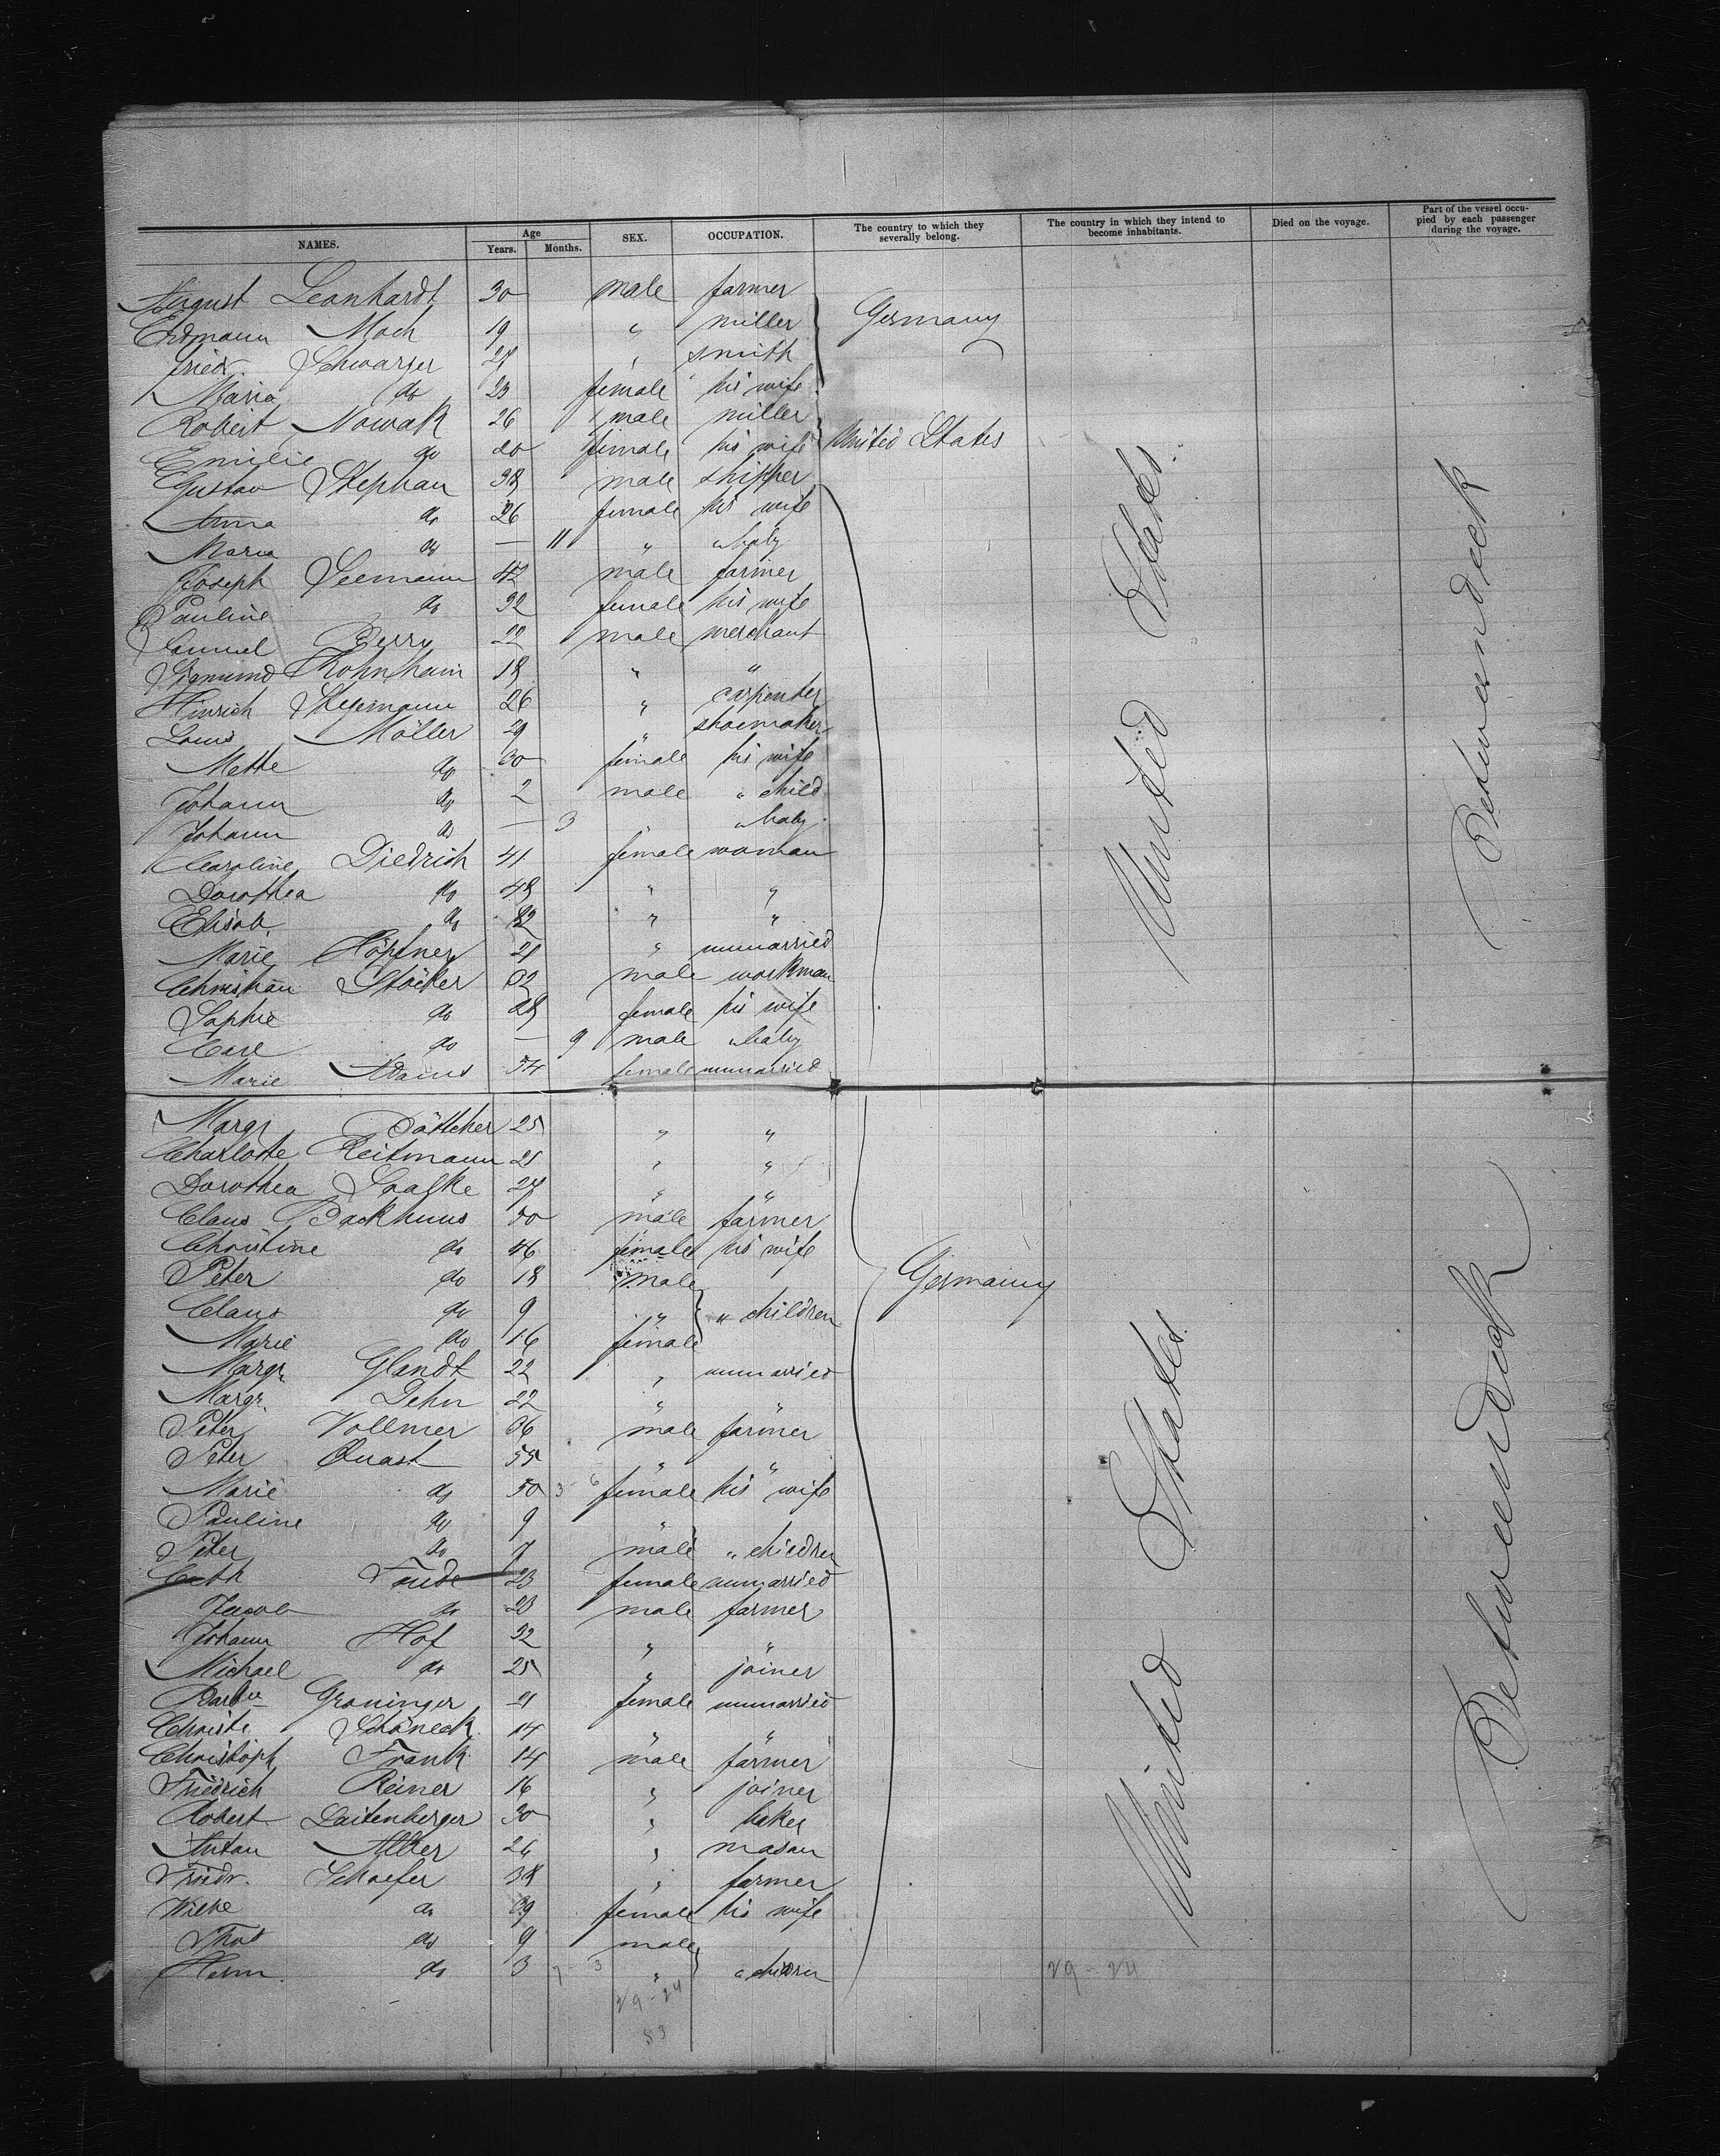 NAMES. Age Years. Months. SEX. OCCUPATION. The country to which they severally belong. The country in which they intend to become inhabitants. Died on the voyage. Part of the vessel occupied by each passenger during the voyage.
August Leonhardt 30 male farmer
Erdmann Moch 19 " miller Germany
Friedr. Schwarzer 27 " smith
Maria do 23 female his wife
Robert Nowak 26 male miller
Emilie do 20 female his wife United States
Gustav Stephan 38 male skipper
Anna do 26 female his wife
Maria do — 11 " " baby
Joseph Seemann 42 male farmer
Pauline do 32 female his wife
Samuel Berry 22 male merchant
Sigmund Rohnheim 18 " "
Hinrich Stegemann 26 " carpenter
Louis Möller 29 " shoemaker
Mette do 30 female his wife
Johann do 2 male " child
Johann do — 3 " " baby
Caroline Diedrich 41 female woman
Dorothea do 48 " "
Elisab. do 82 " "
Marie Höpfner 21 " unmarried
Christian Stöcker 32 male workman
Sophie do 28 female his wife
Carl do — 9 male " baby
Marie Adams 54 female unmarried
Margr. Böttcher 25 " "
Charlotte Reitmann 21 " "
Dorothea 24 " "
Claus Backhuus 50 male farmer
Christine do 46 female his wife
Peter do 18 male
Claus do 9 " " children
Marie do 16 female
Margr. Glandt 22 " unmarried
Margr. Dehn 22 " "
Peter Vollmer 36 male farmer
Peter Quast 55 " "
Marie do 50 female his wife
Pauline do 9 "
Peter do 7 male " children
Cath 23 female unmarried
Jacob do 23 male farmer
Johann Hof 32 " "
Michael do 25 " joiner
Groninger 21 female unmarried
Christe. Schöneck 14 " "
Christoph Frank 14 male farmer
Friedrich Reiner 16 " joiner
Robert Laitenberger 30 " baker
Anton Alber 26 " mason
Friedr. Schaefer 38 " farmer
do 39 female his wife
do 9 male
Herm. do 3 " " children
Germany
United States
United States
Betweendeck
Betweendeck
29-24
29-24
53